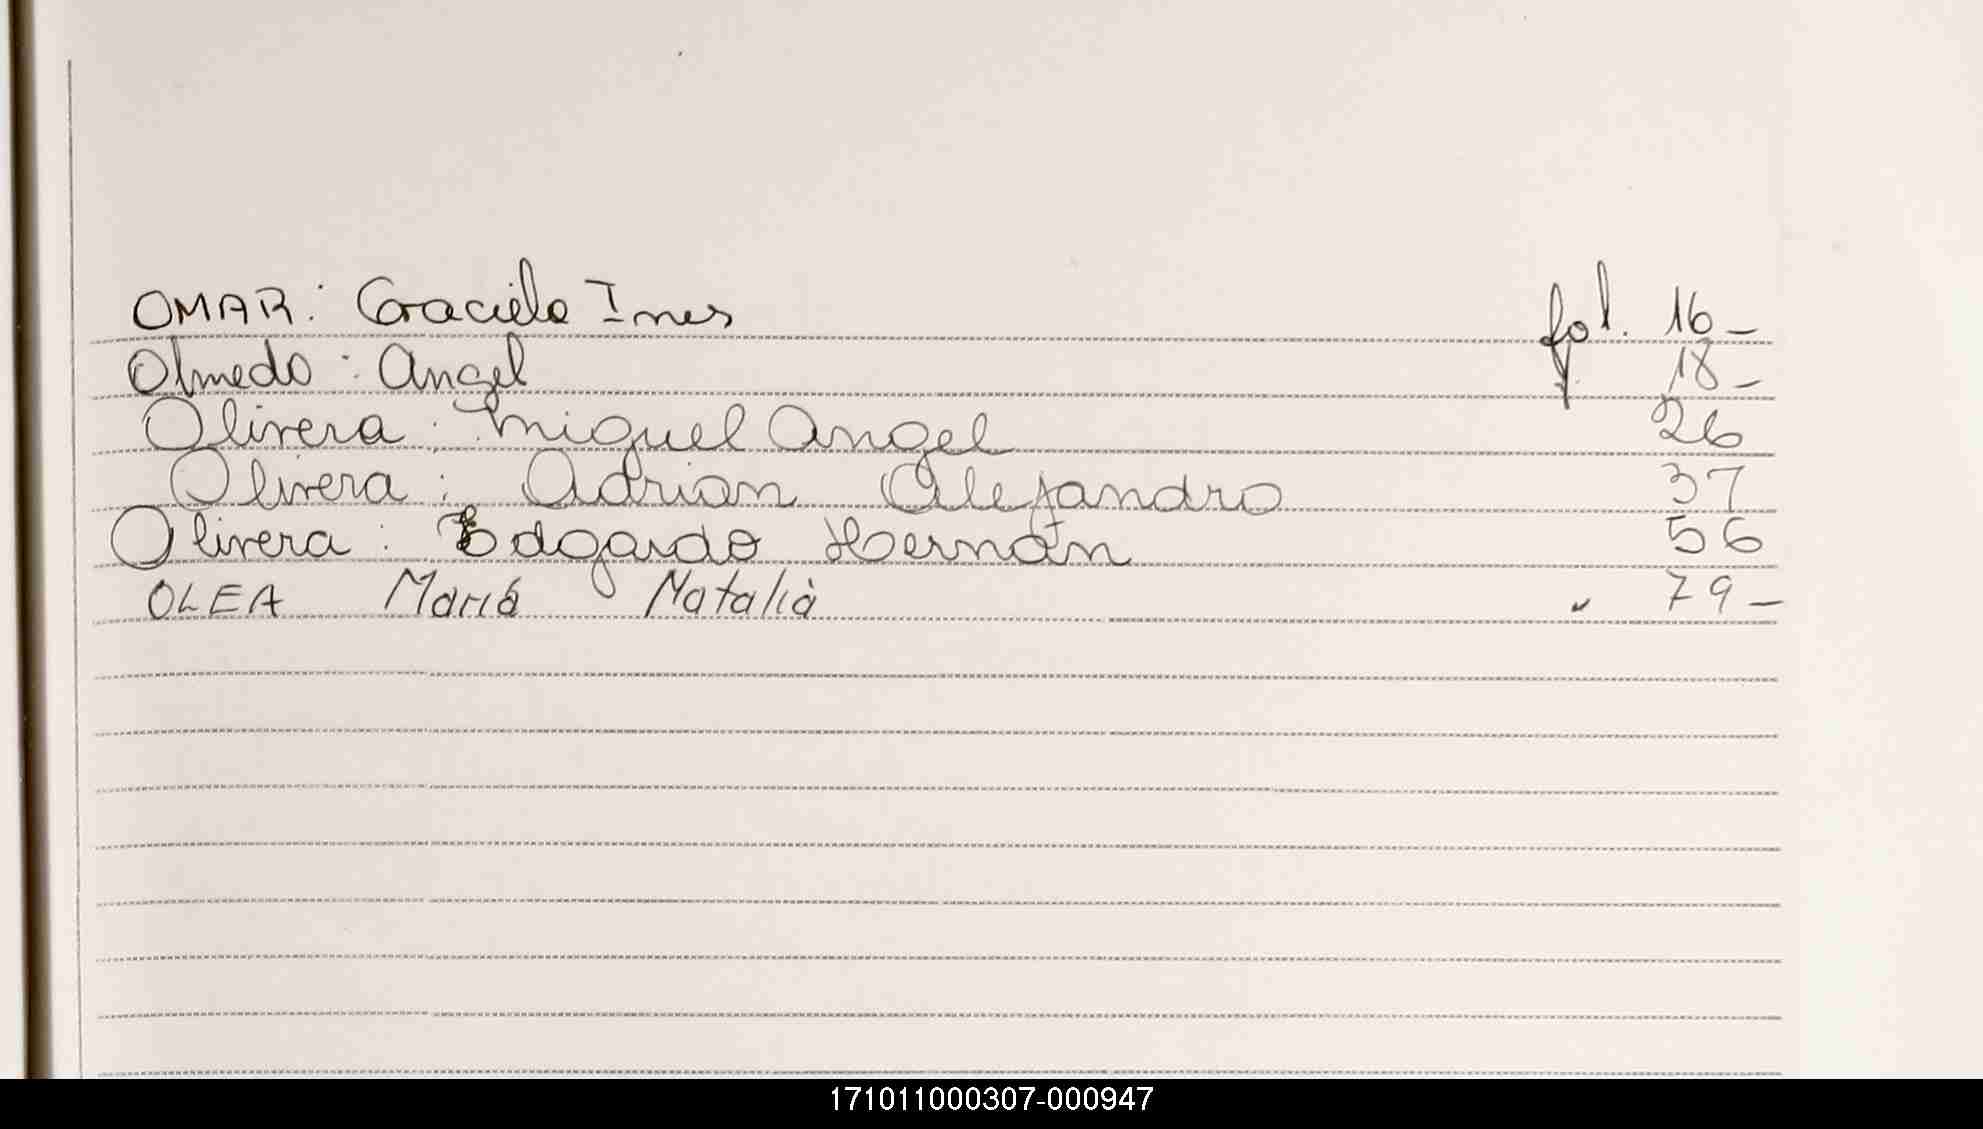 OMAR: Graciela Ines fol. 16-
Olmedo: Angel f. 18-
Olivera: Miguel Angel 26
Olivera: Adrian Alejandro 37
Olivera: Edgardo Hernán 56
OLEA María Natalia " 79-
171011000307-000947